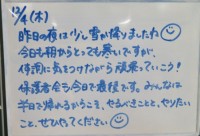 12/4(木)
昨日の夜は少し雪が降りましたね
今日も朝からとっても寒いですが、
体調に気をつけながら頑張っていこう！
保護者会も今日で最後です。みんなは
半日で帰れるからこそ、やるべきことと、やりたい
こと、ぜひやってください